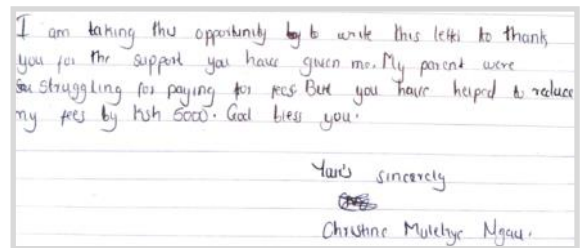 I am taking this opportunity to write this letter to thank
you for the support you have given me. My parent were
struggling for paying for fees But you have helped to reduce
my fees by Ksh 5000. God bless you.
Your's sincerely
Christine Mutehye Ngau.